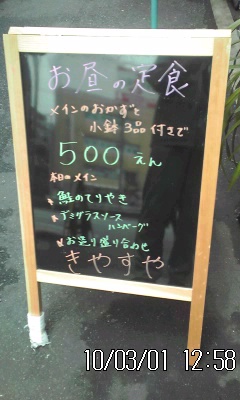 お昼の定食
メインのおかずと
小鉢3品付きで
500えん
本日のメイン
鮭のてりやき
デミグラスソース
ハンバーグ
お造り盛り合わせ
きやすや
10/03/01 12:58